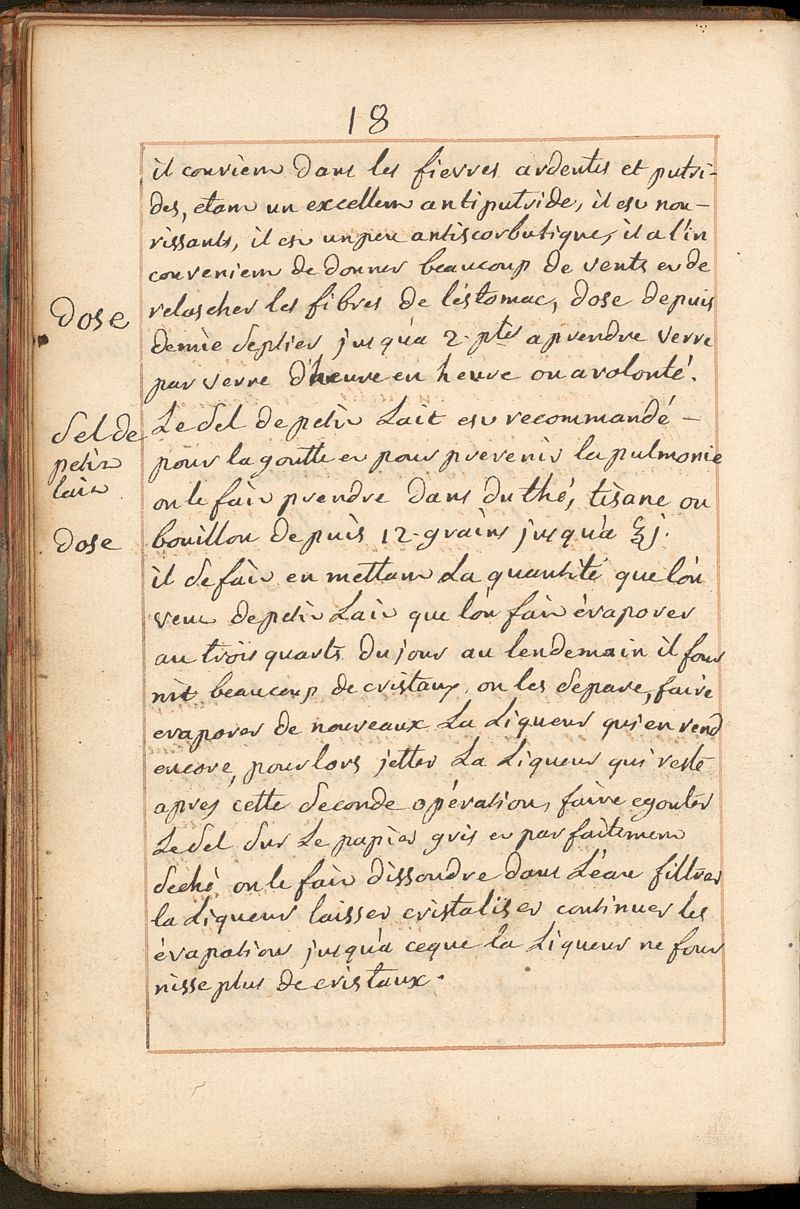 18
il convient dans les fievres ardentes et putri-
des, etant un excellent antiputride, il est nou-
rissants, il est un peu antiscorbutique, il a l'in
convenient de donner beaucoup de vents et de
Dose
relascher les fibres de l'éstomac, dose depuis
demie septier jusqu'a 2. ptes a prendre verre
par verre d'heure en heure ou a volonté.
Sel de
petit
lait
Le sel de petit Lait est recommandé -
pour la goutte et pour prevenir la pulmonie
on le fait prendre dans du thé, tisane ou
Dose
bouillon depuis 12. grains jusqu'a ʒj.
il se fait en mettant La quantité que l'on
veut de petit Lait que l'on fait évaporer
au trois quarts du jour au lendemain il four
nit beaucoup de cristaux, on les separe, faire
evaporer de nouveaux La Liqueur qui en rend
encore, pour lors jetter La Liqueur qui reste
apres cette seconde opération, faire egouter
Le sel sur Le papier gris et parfaitement
seché on le fait dissoudre dans L'eau filtrer
la Liqueur laisser cristaliser continuer les
évapations jusqu'a ceque la Liqueur ne four
nisse plus de cristaux.